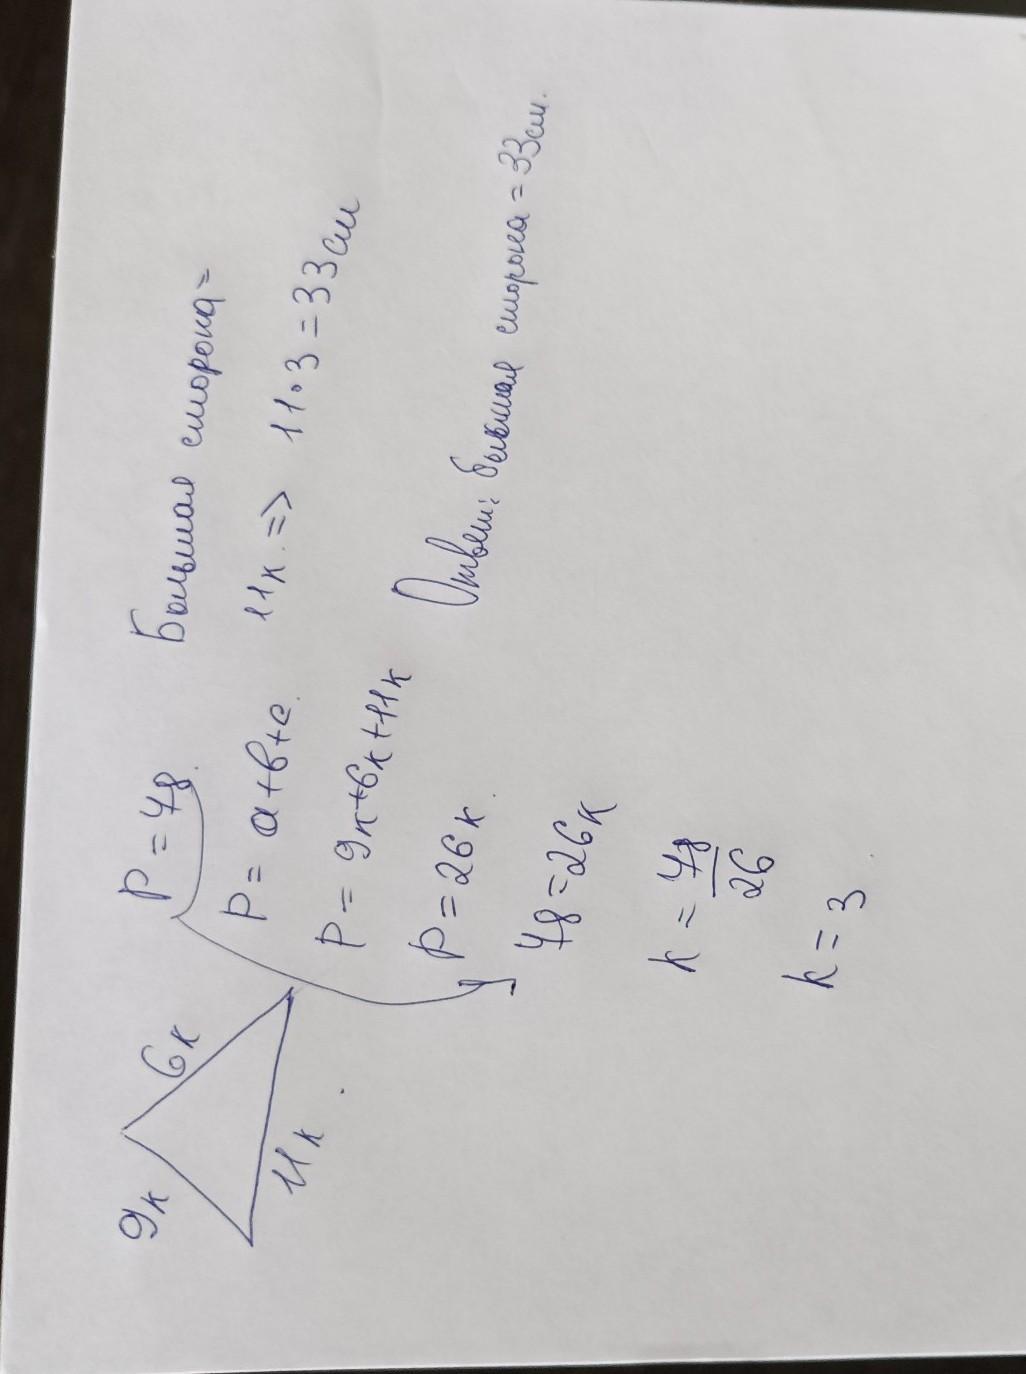 9к
6к
11к
P = 78.
P = a+b+c.
P = 9к+6к+11к
P = 26к.
78 = 26к
к = 78/26
к = 3
Большая сторона=
11к. => 11·3 = 33см
Ответ: большая сторона = 33см.